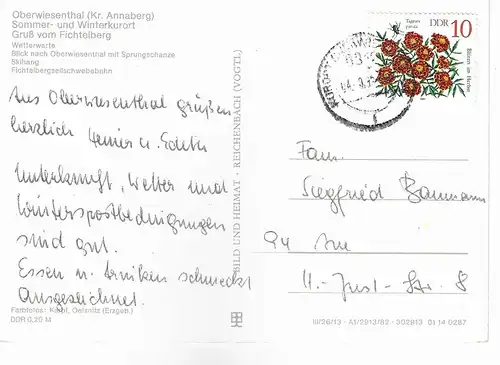 Oberwiesenthal (Kr. Annaberg)
Sommer- und Winterkurort
Gruß vom Fichtelberg
Wetterwarte
Blick nach Oberwiesenthal mit Sprungschanze
Skihang
Fichtelbergseilschwebebahn
Aus Oberwiesenthal grüßen
herzlich Heiner u. Edith
Unterkunft, Wetter und
Wintersportbedingungen
sind gut.
Essen u. trinken schmeckt
Ausgezeichnet.
Farbfotos: Oelsnitz (Erzgeb.)
DDR 0,20 M
BILD UND HEIMAT · REICHENBACH (VOGTL)
Tagetes patula
DDR 10
Blüten im Herbst
Fam.
Siegfried Baumann
94 Aue
Str. 8
III/26/13 · A1/2913/82 · 302813 01 14 0287